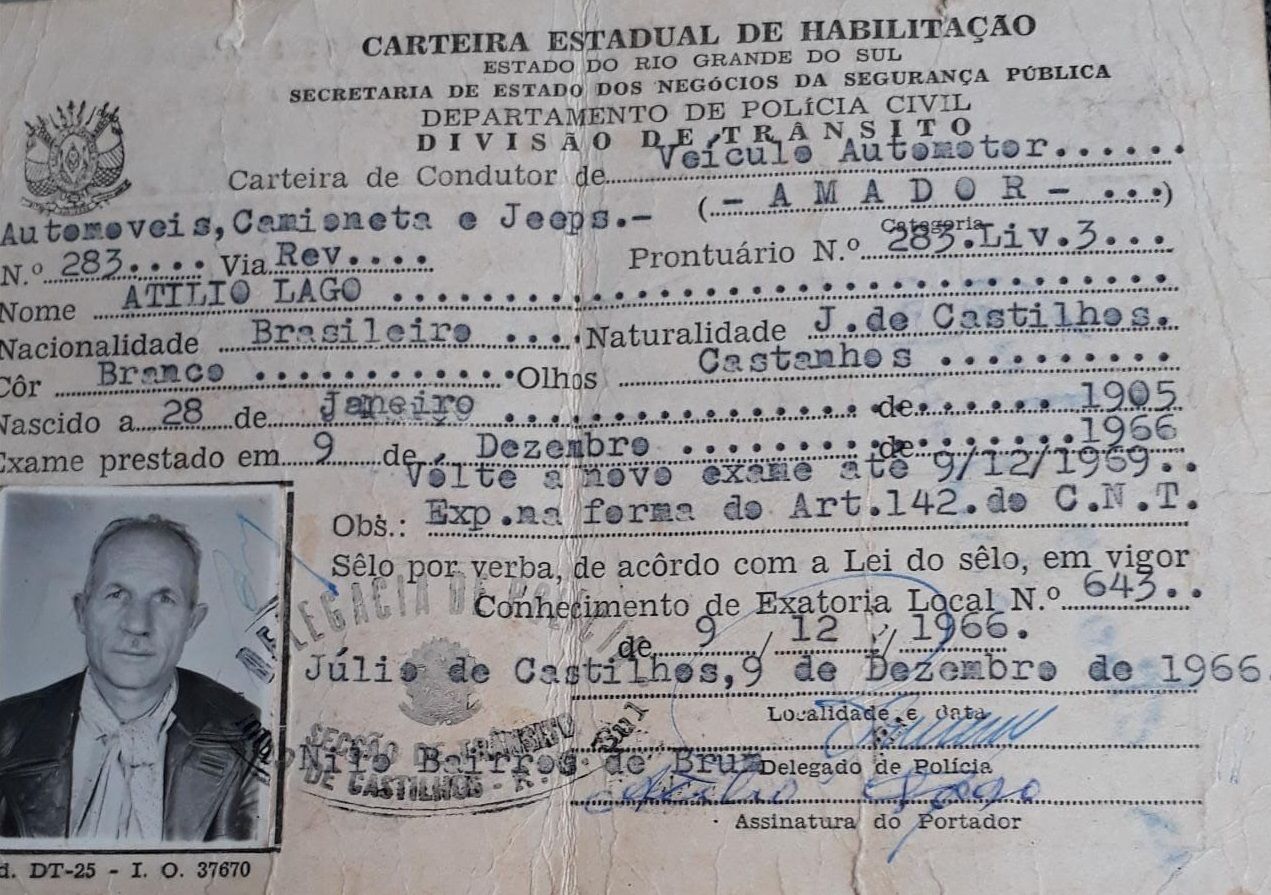 CARTEIRA ESTADUAL DE HABILITAÇÃO
ESTADO DO RIO GRANDE DO SUL
SECRETARIA DE ESTADO DOS NEGÓCIOS DA SEGURANÇA PÚBLICA
DEPARTAMENTO DE POLÍCIA CIVIL
DIVISÃO DE TRÂNSITO
Carteira de Condutor de Veículo Automotor......
Automoveis, Camioneta e Jeeps.- (- AMADOR- ...)
Categoria
N.º 283.... Via Rev.... Prontuário N.º 283.Liv.3...
Nome ATILIO LAGO
Nacionalidade Brasileiro .... Naturalidade J.de Castilhos.
Côr Branco Olhos Castanhos
Nascido a 28 de Janeiro de 1905
Exame prestado em 9 de Dezembro de 1966
Volte a novo exame até 9/12/1969..
Obs.: Exp.na forma do Art.142.do C.N.T.
Sêlo por verba, de acôrdo com a Lei do sêlo, em vigor
Conhecimento de Exatoria Local N.º 643..
de 9 / 12 / 1966.
Júlio de Castilhos,9 de Dezembro de 1966.
Localidade e data
Nilo Bairros de Brum Delegado de Polícia
Atilio Lago
Assinatura do Portador
DELEGACIA DE POLÍCIA
SECÇÃO DE TRÂNSITO
DE CASTILHOS - R. G. Sul
d. DT-25 - I. O. 37670